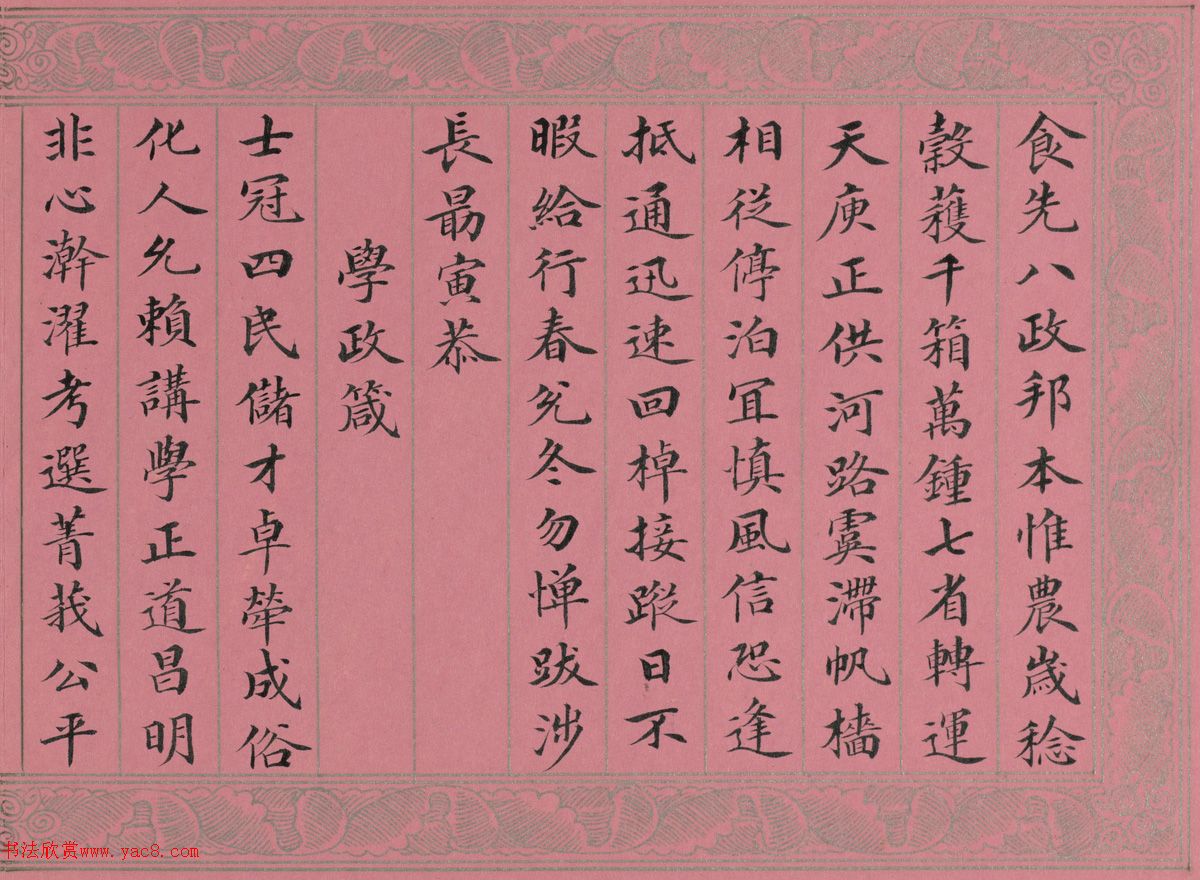 食先八政邦本惟農歲稔
穀蓷千箱萬鍾七省轉運
天庾正供河路虞滯帆檣
相從停泊宜慎風信恐逢
抵通迅速回棹接蹤日不
暇給行春兌冬勿憚跋涉
長勗寅恭
學政箴
士冠四民儲才卓犖成俗
化人允賴講學正道昌明
非心澣濯考選菁莪公平
书法欣赏www.yac8.com